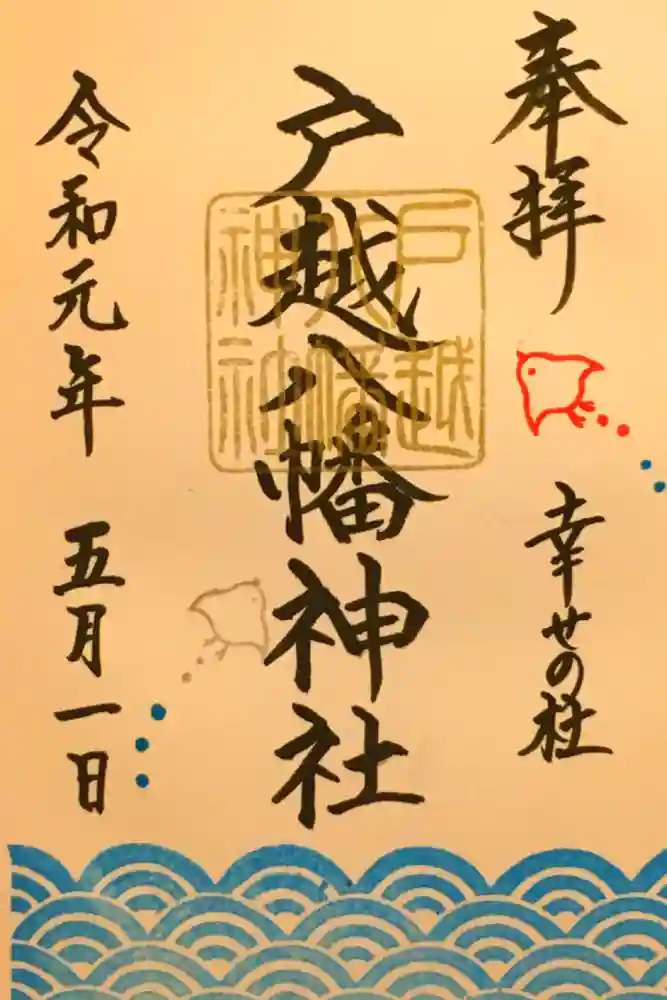 奉拝
幸せの杜
戸越八幡神社
戸越
八幡
神社
令和元年 五月一日